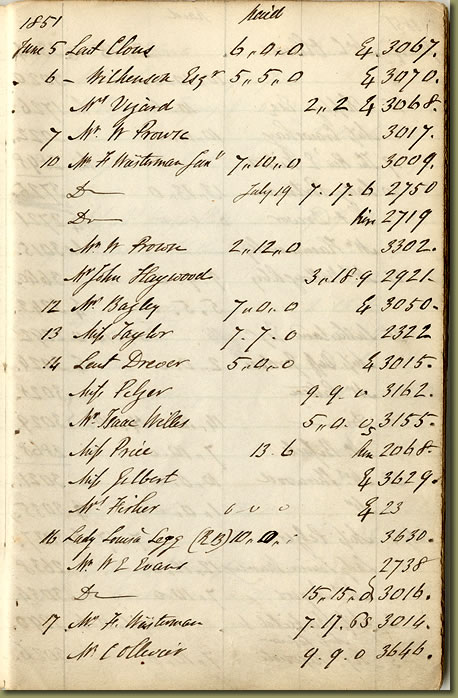 1851 Paid
June 5 Leut Clous 6,,0,,0 & 3067.
6 – Wilkenson Esqr 5,,5,,0 & 3070.
Mrs Vizard 2,,2 & 3068.
7 Mr W Prowse 3017.
10 Mr F Wasterman Junr 7,,10,,0 3009.
Do July 19 7.17.6 2750
Do 2719
Mr W Prowse 2,,12,,0 3302.
Mr John Haywood 3,,18.9 2921.
12 Mr Bagley 7,,0,,0 & 3050.
13 Miss Taylor 7.7.0 2322
14 Leut Drever 5,,0,,0 & 3015.
Miss Pelzer 9.9.0 3162.
Mr Isaac Willis 5,,0.0 3155.
Miss Price 13.6 2068.
Miss Gilbert & 3629.
Mrs Fisher 0 0 0 & 23
16 Lady Louisa Legg (RB) 10,,0,, 3630.
Mr W E Evans 2738
Do 15,,15,,0 3016.
17 Mr F Wasterman 7.17.6 3014.
Mr Collivier 9.9.0 3646.